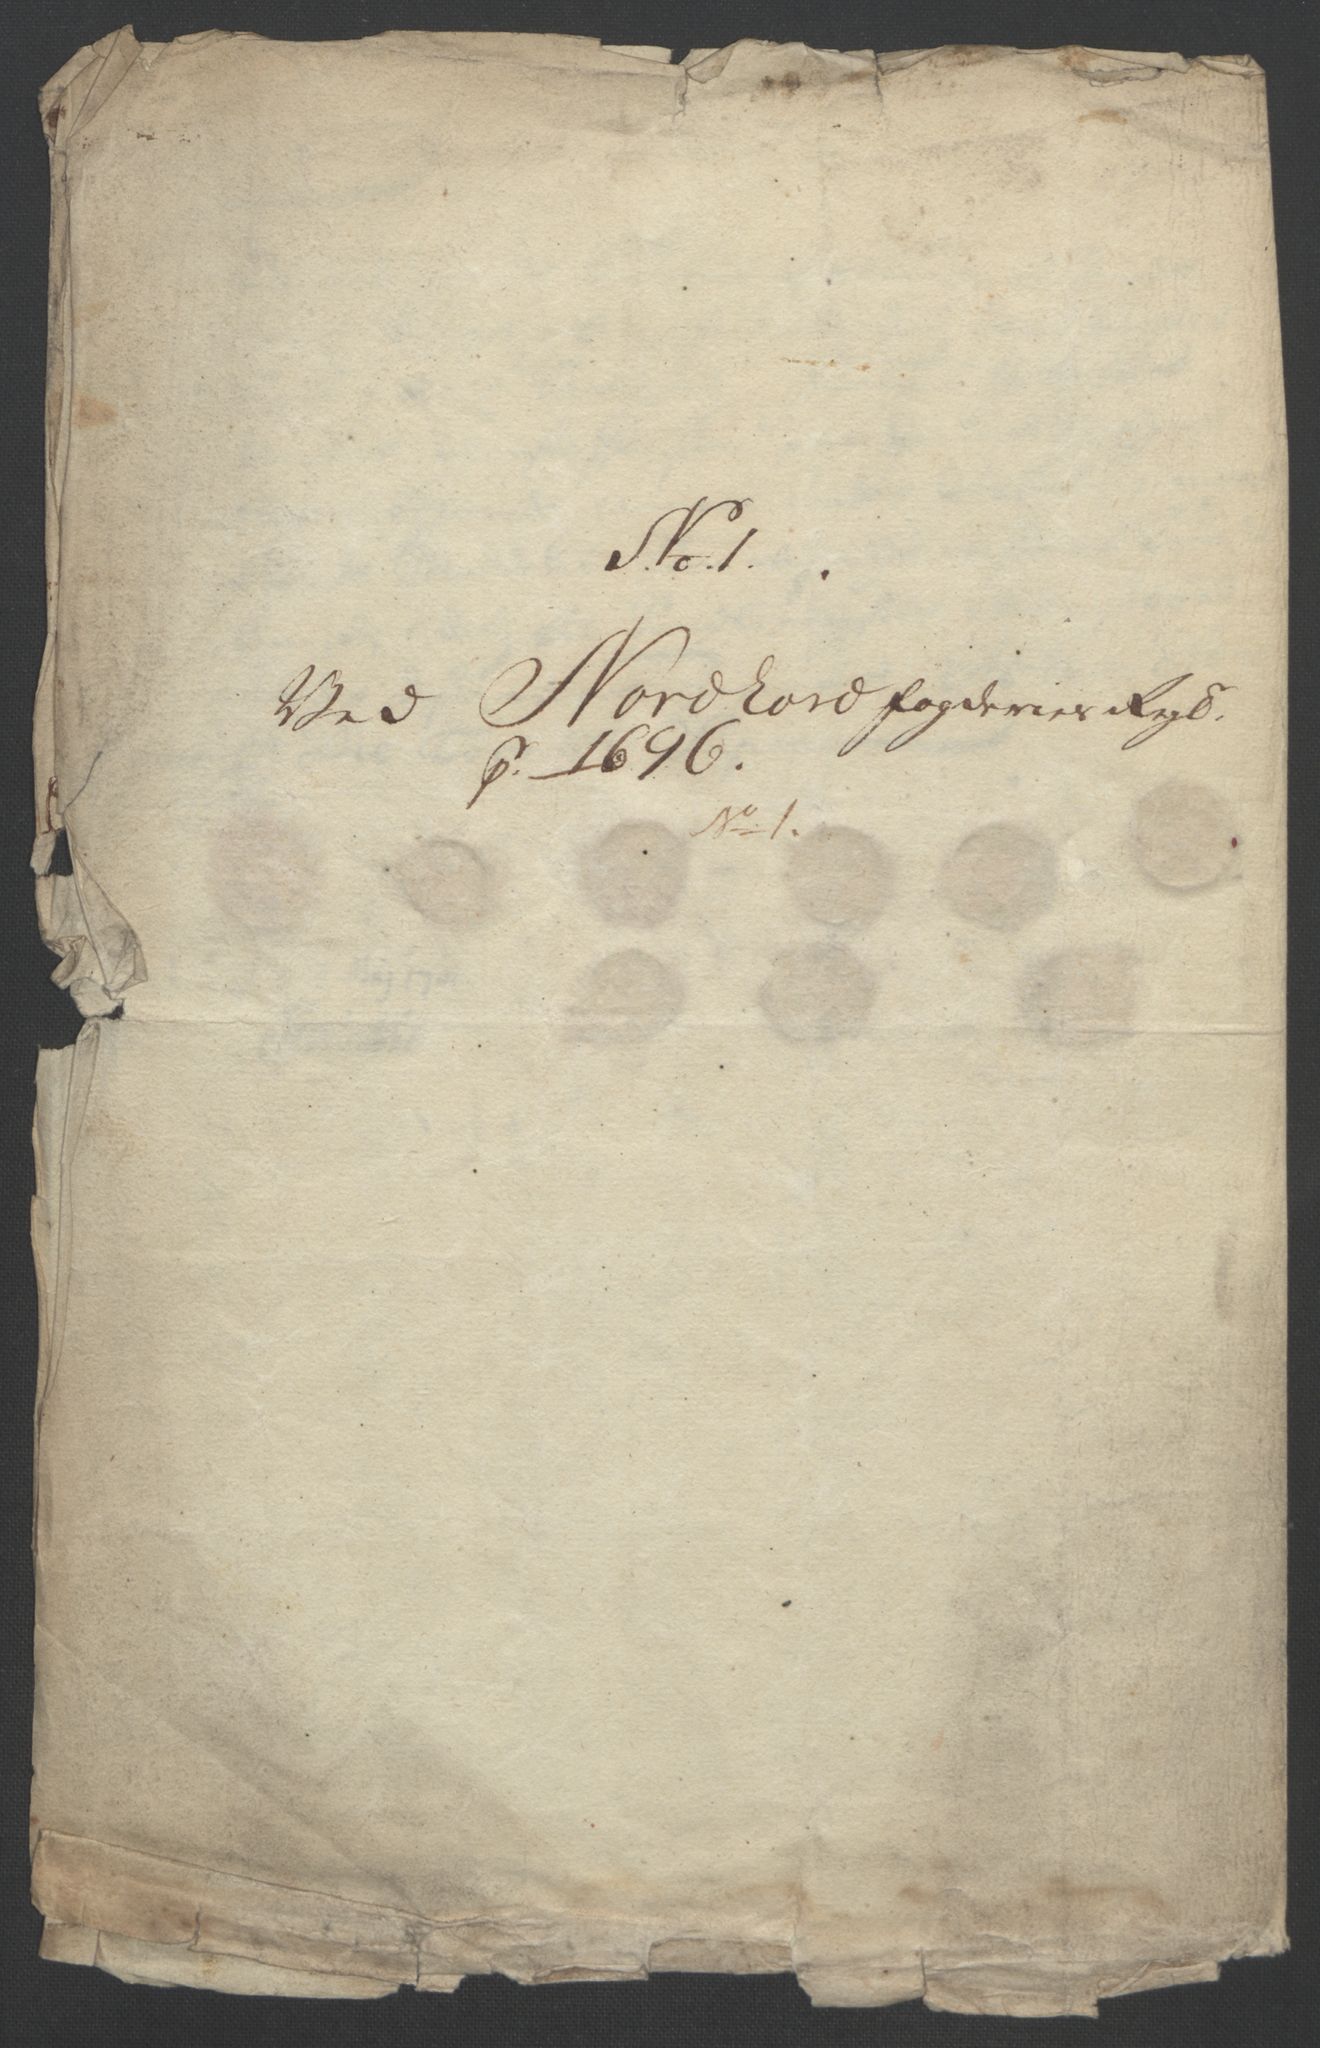 No. 1.
Ved Nordhord fogderies Regs.
p. 1696.
No 1.